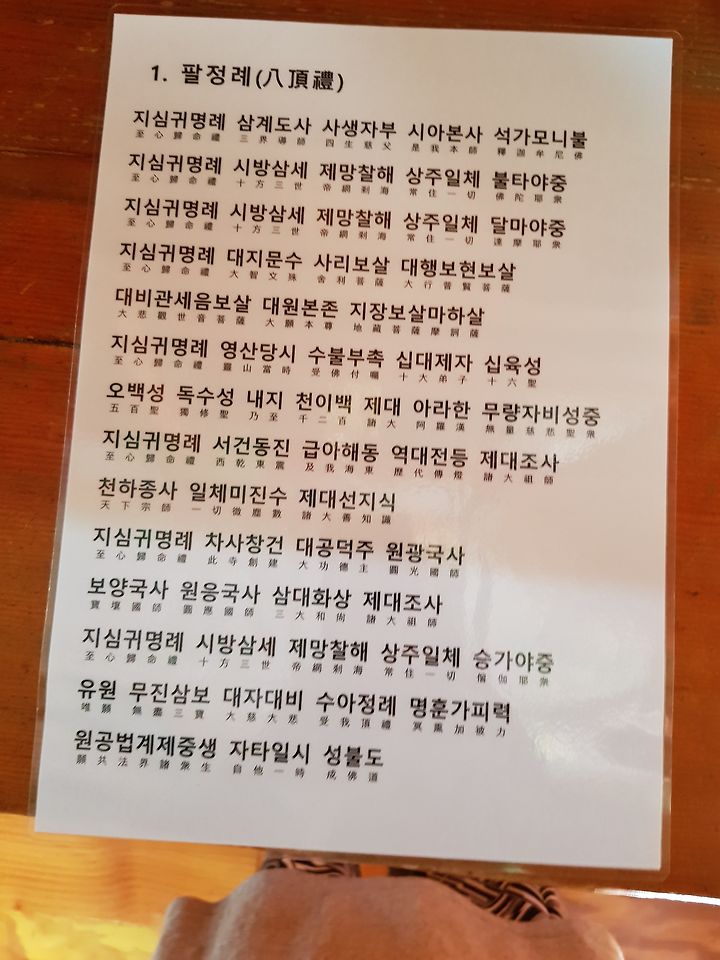 1. 팔정례(八頂禮)
지심귀명례 삼계도사 사생자부 시아본사 석가모니불
至心歸命禮 三界導師 四生慈父 是我本師 釋迦牟尼佛
지심귀명례 시방삼세 제망찰해 상주일체 불타야중
至心歸命禮 十方三世 帝網刹海 常住一切 佛陀耶衆
지심귀명례 시방삼세 제망찰해 상주일체 달마야중
至心歸命禮 十方三世 帝網刹海 常住一切 達摩耶衆
지심귀명례 대지문수 사리보살 대행보현보살
至心歸命禮 大智文殊 舍利菩薩 大行普賢菩薩
대비관세음보살 대원본존 지장보살마하살
大悲觀世音菩薩 大願本尊 地藏菩薩摩訶薩
지심귀명례 영산당시 수불부촉 십대제자 십육성
至心歸命禮 靈山當時 受佛付囑 十大弟子 十六聖
오백성 독수성 내지 천이백 제대 아라한 무량자비성중
五百聖 獨修聖 乃至 千二百 諸大 阿羅漢 無量慈悲聖衆
지심귀명례 서건동진 급아해동 역대전등 제대조사
至心歸命禮 西乾東震 及我海東 歷代傳燈 諸大祖師
천하종사 일체미진수 제대선지식
天下宗師 一切微塵數 諸大善知識
지심귀명례 차사창건 대공덕주 원광국사
至心歸命禮 此寺創建 大功德主 圓光國師
보양국사 원응국사 삼대화상 제대조사
寶壤國師 圓應國師 三大和尙 諸大祖師
지심귀명례 시방삼세 제망찰해 상주일체 승가야중
至心歸命禮 十方三世 帝網刹海 常住一切 僧伽耶衆
유원 무진삼보 대자대비 수아정례 명훈가피력
唯願 無盡三寶 大慈大悲 受我頂禮 冥熏加被力
원공법계제중생 자타일시 성불도
願共法界諸衆生 自他一時 成佛道